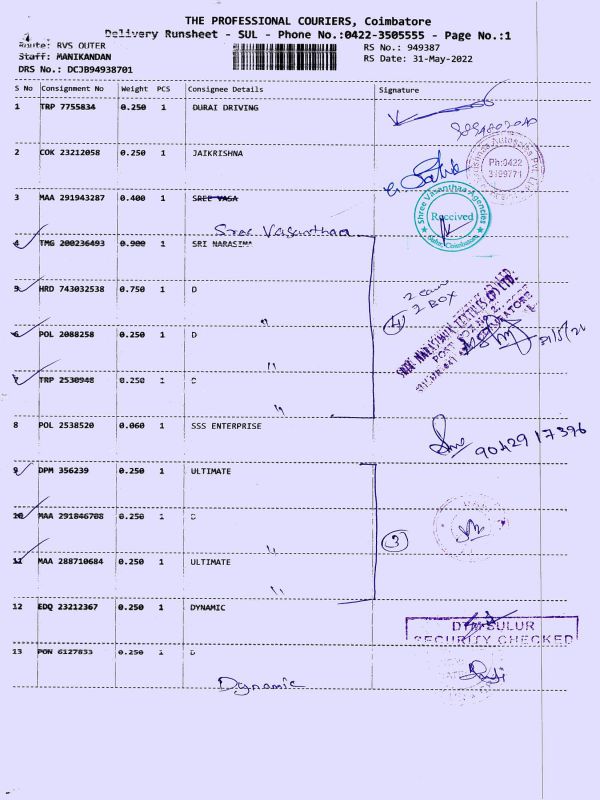 THE PROFESSIONAL COURIERS, Coimbatore
Delivery Runsheet - SUL - Phone No.:0422-3505555 - Page No.:1
Route: RVS OUTER
RS No.: 949387
Staff: MANIKANDAN
RS Date: 31-May-2022
DRS No.: DCJB94938701
S No Consignment No Weight PCS Consignee Details Signature
1 TRP 7755834 0.250 1 DURAI DRIVING
2 COK 23212058 0.250 1 JAIKRISHNA
Ph:0422
3199771
3 MAA 291943287 0.400 1 SREE VASA
Sree Vasanthaa
Shree Vasanthaa Agencies
Received
Sulur, Coimbatore
4 TMG 200236493 0.900 1 SRI NARASIMA
5 HRD 743032538 0.750 1 D
"
4
2 BOX
6 POL 2088258 0.250 1 D
"
7 TRP 2530948 0.250 1 D
"
8 POL 2538520 0.060 1 SSS ENTERPRISE
9042917396
9 DPM 356239 0.250 1 ULTIMATE
10 MAA 291846708 0.250 1 D
"
3
11 MAA 288710684 0.250 1 ULTIMATE
"
12 EDQ 23212367 0.250 1 DYNAMIC
SULUR
SECURITY CHECKED
13 PON 6127833 0.250 1 D
Dynamic